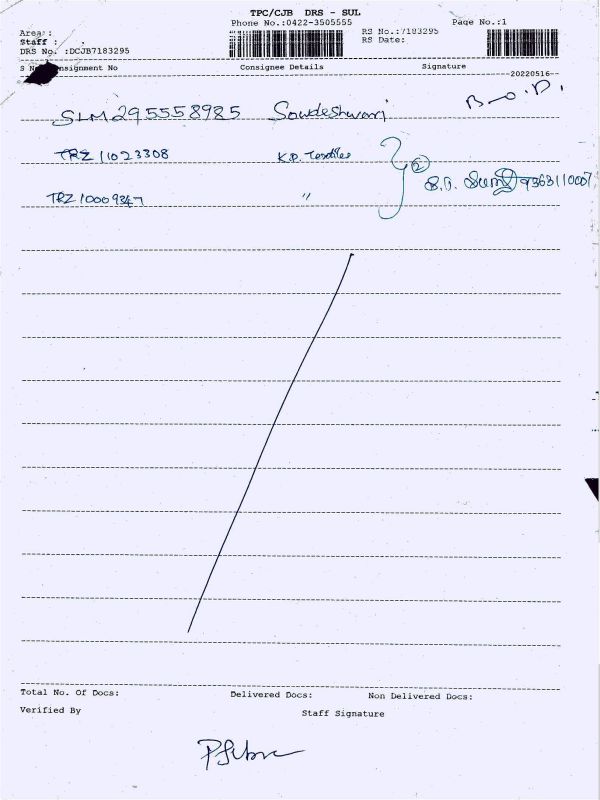 TPC/CJB DRS - SUL
Phone No.:0422-3505555
Page No.:1
Area :
RS No.:7183295
Staff :
RS Date:
DRS No. :DCJB7183295
S No nsignment No Consignee Details Signature
20220516
B-O.D.
SLM295558985 Sowdeshwari
TRZ 11023308 K.P. Textiles
② 9363110007
TRZ 10009347 "
Total No. Of Docs: Delivered Docs: Non Delivered Docs:
Verified By Staff Signature